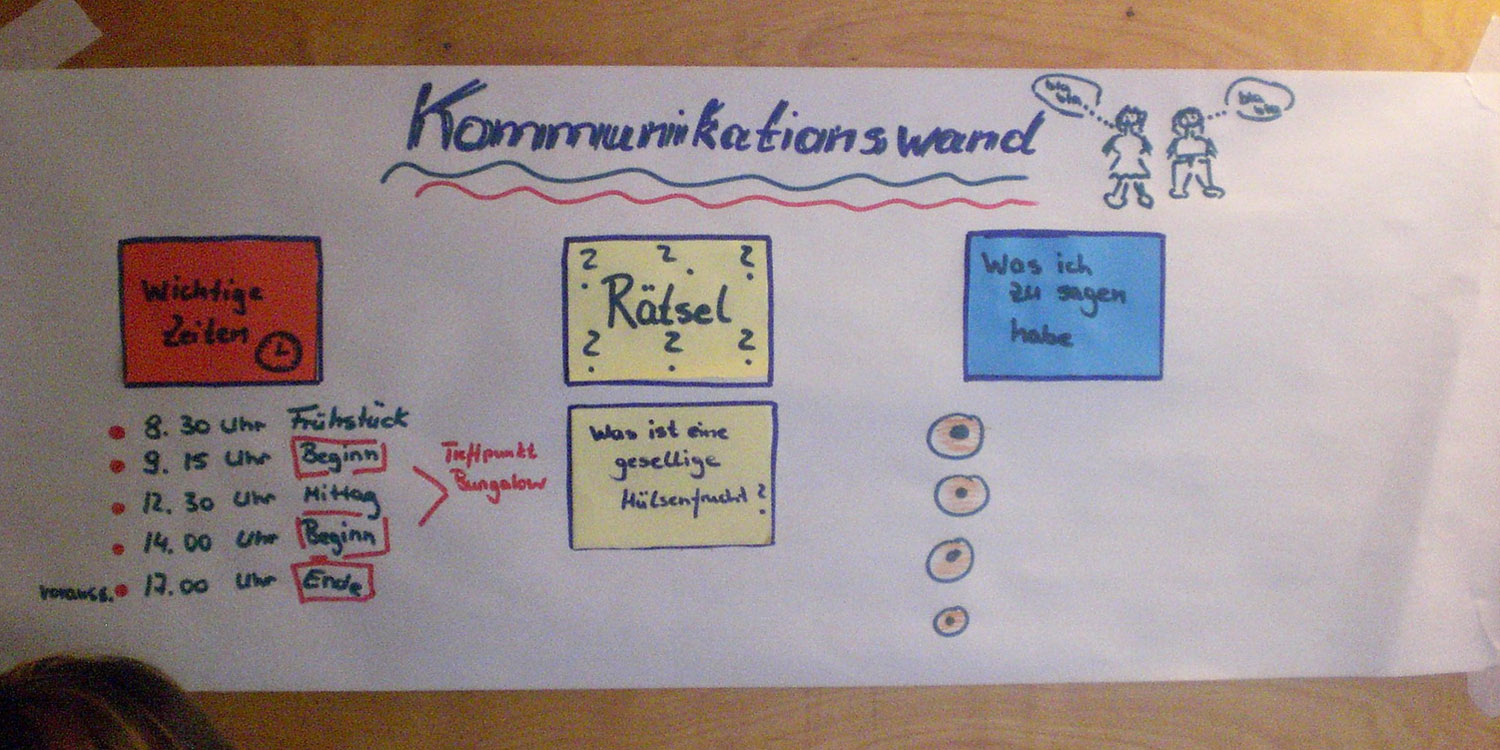 Kommunikationswand
bla
bla
bla
bla
Wichtige
Zeiten
8.30 Uhr Frühstück
9.15 Uhr Beginn
12.30 Uhr Mittag
14.00 Uhr Beginn
vorauss. 17.00 Uhr Ende
Treffpunkt
Bungalow
? ? ?
Rätsel
? ? ?
Was ist eine
gesellige
Hülsenfrucht?
Was ich
zu sagen
habe